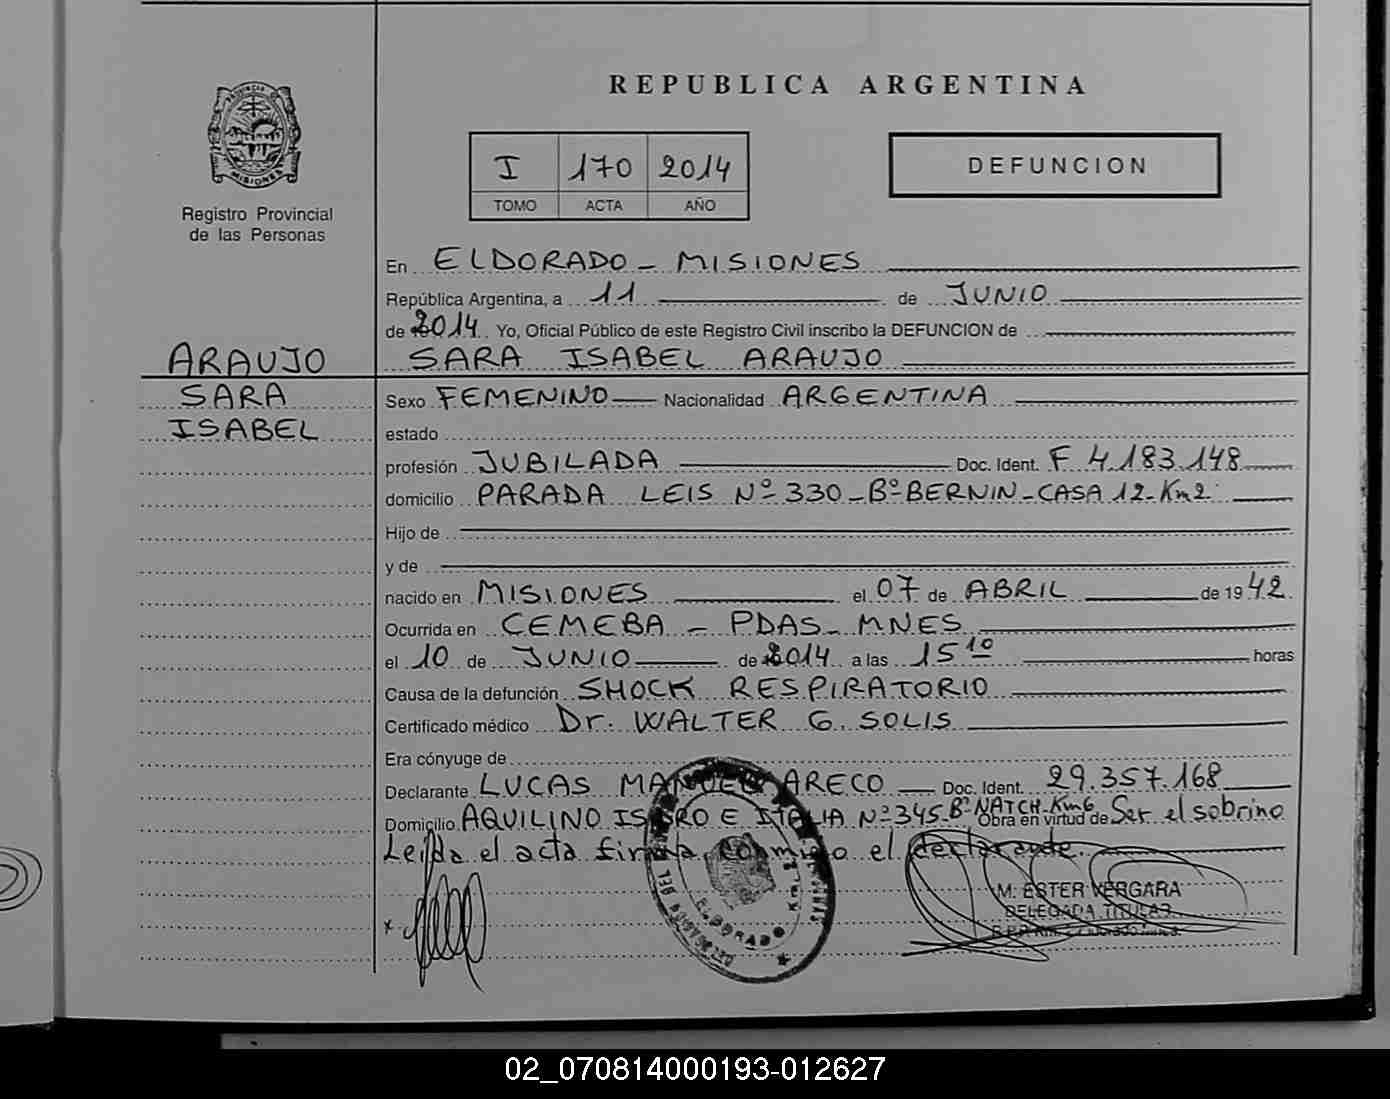 REPUBLICA ARGENTINA
PROVINCIA DE
MISIONES
Registro Provincial
de las Personas
I 170 2014
TOMO ACTA AÑO
DEFUNCION
En ELDORADO - MISIONES
República Argentina, a 11 de JUNIO
de 2014 Yo, Oficial Público de este Registro Civil inscribo la DEFUNCION de
ARAUJO
SARA
ISABEL
SARA ISABEL ARAUJO
Sexo FEMENINO Nacionalidad ARGENTINA
estado
profesión JUBILADA Doc. Ident. F 4.183.148
domicilio PARADA LEIS Nº 330 - Bº BERNIN - CASA 12 - Km 2
Hijo de
y de
nacido en MISIONES el 07 de ABRIL de 1942
Ocurrida en CEMEBA - PDAS - MNES
el 10 de JUNIO de 2014 a las 15 10 horas
Causa de la defunción SHOCK RESPIRATORIO
Certificado médico Dr. WALTER G. SOLIS
Era cónyuge de
Declarante LUCAS MANUEL ARECO Doc. Ident. 29.357.168
Domicilio AQUILINO ISIDRO E ITALIA Nº 345 Bº NATCH Km6 Obra en virtud de Ser el sobrino
Leida el acta firma conmigo el declarante.
x
ELDORADO
M. ESTER VERGARA
DELEGADA TITULAR
02_070814000193-012627